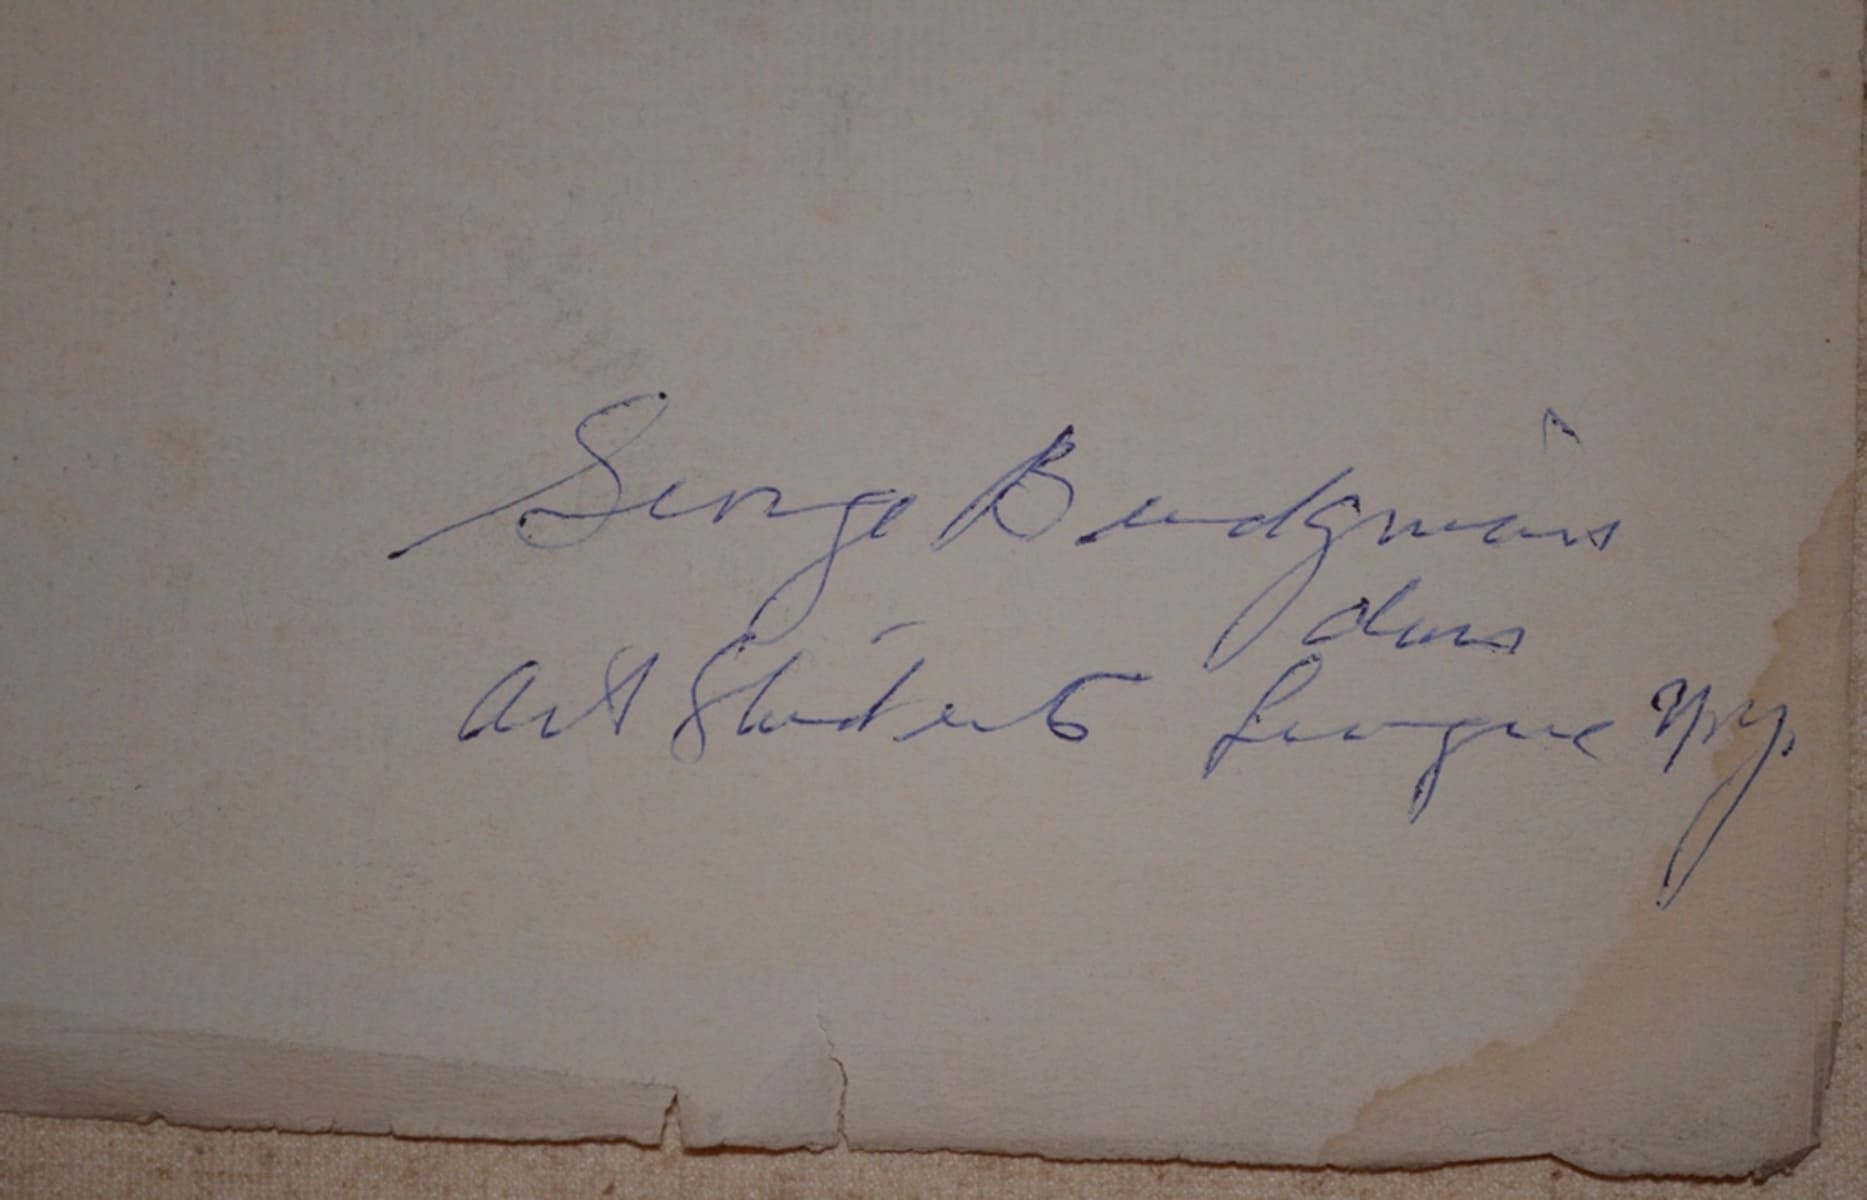 George Bridgman's
class
Art Students League N.Y.